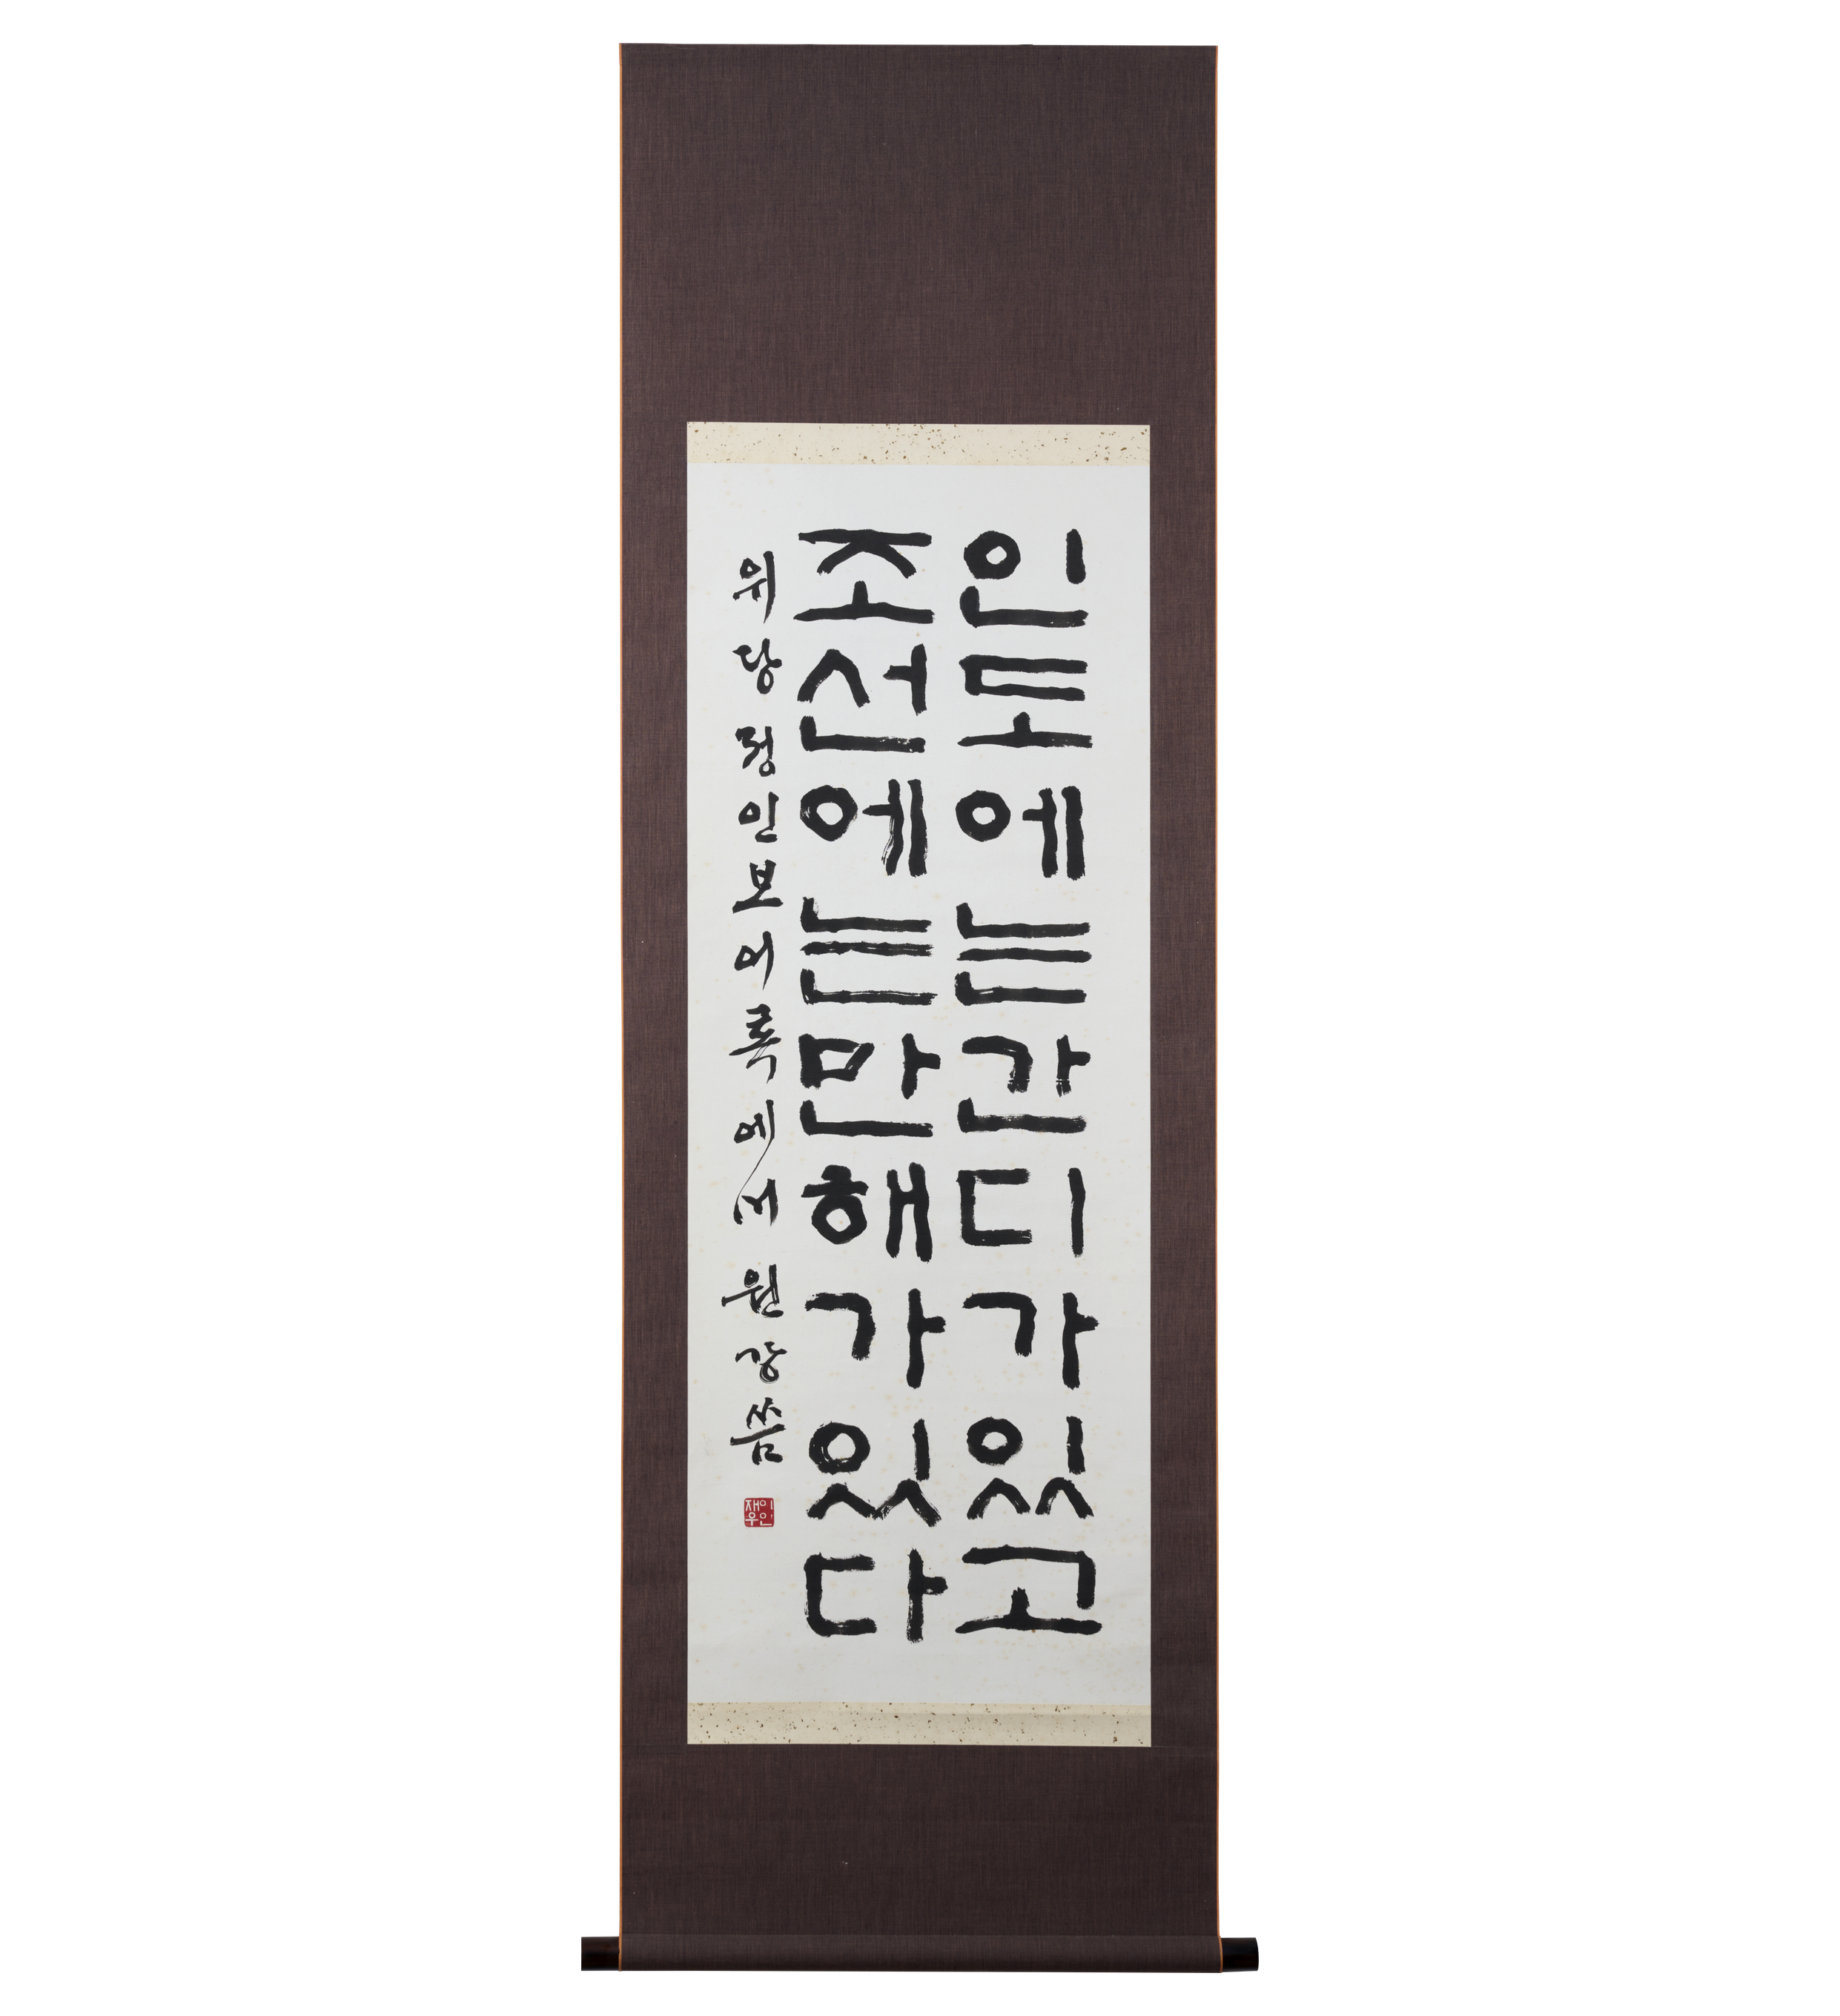 인도에는간디가있고
조선에는만해가있다
위당정인보어록에서 원강씀